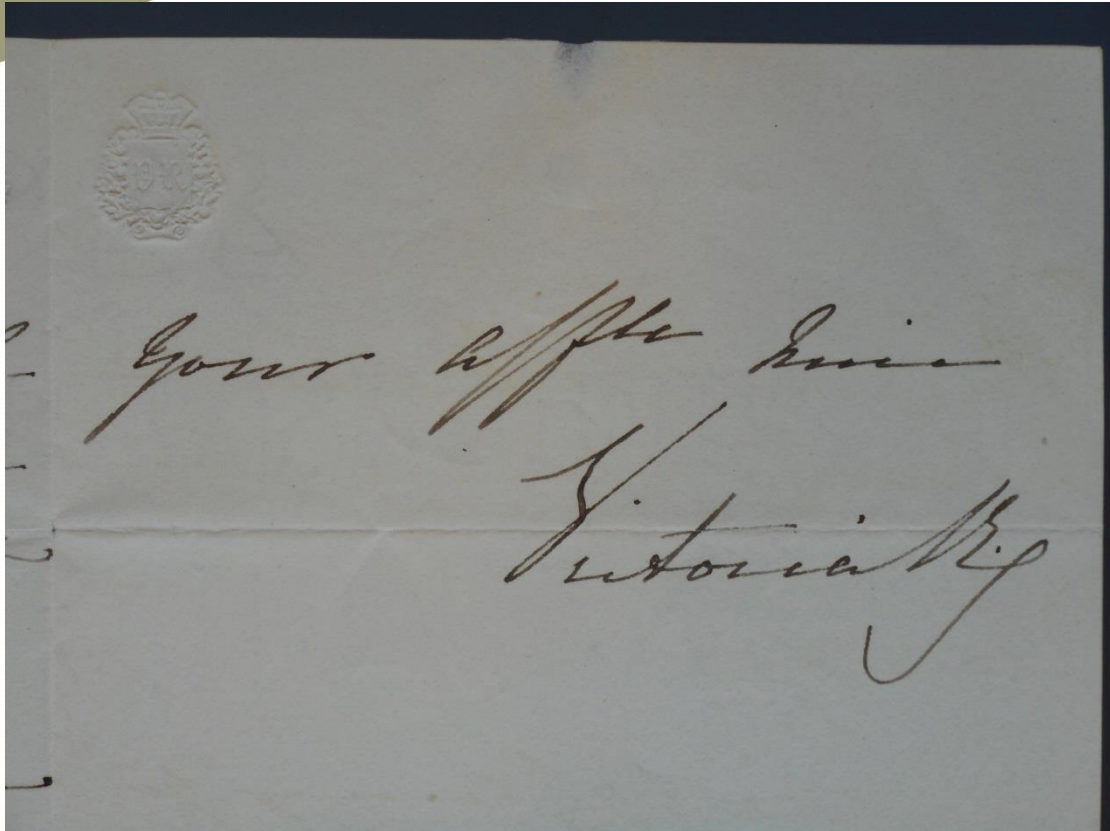 VR
Your affte Niece
Victoria R.